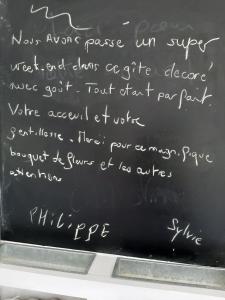 Nous avons passé un super
week-end dans ce gîte décoré
avec goût. Tout était parfait.
Votre acceuil et votre
gentillesse. Merci pour ce magnifique
bouquet de fleurs et les autres
attentions
PHILIPPE Sylvie